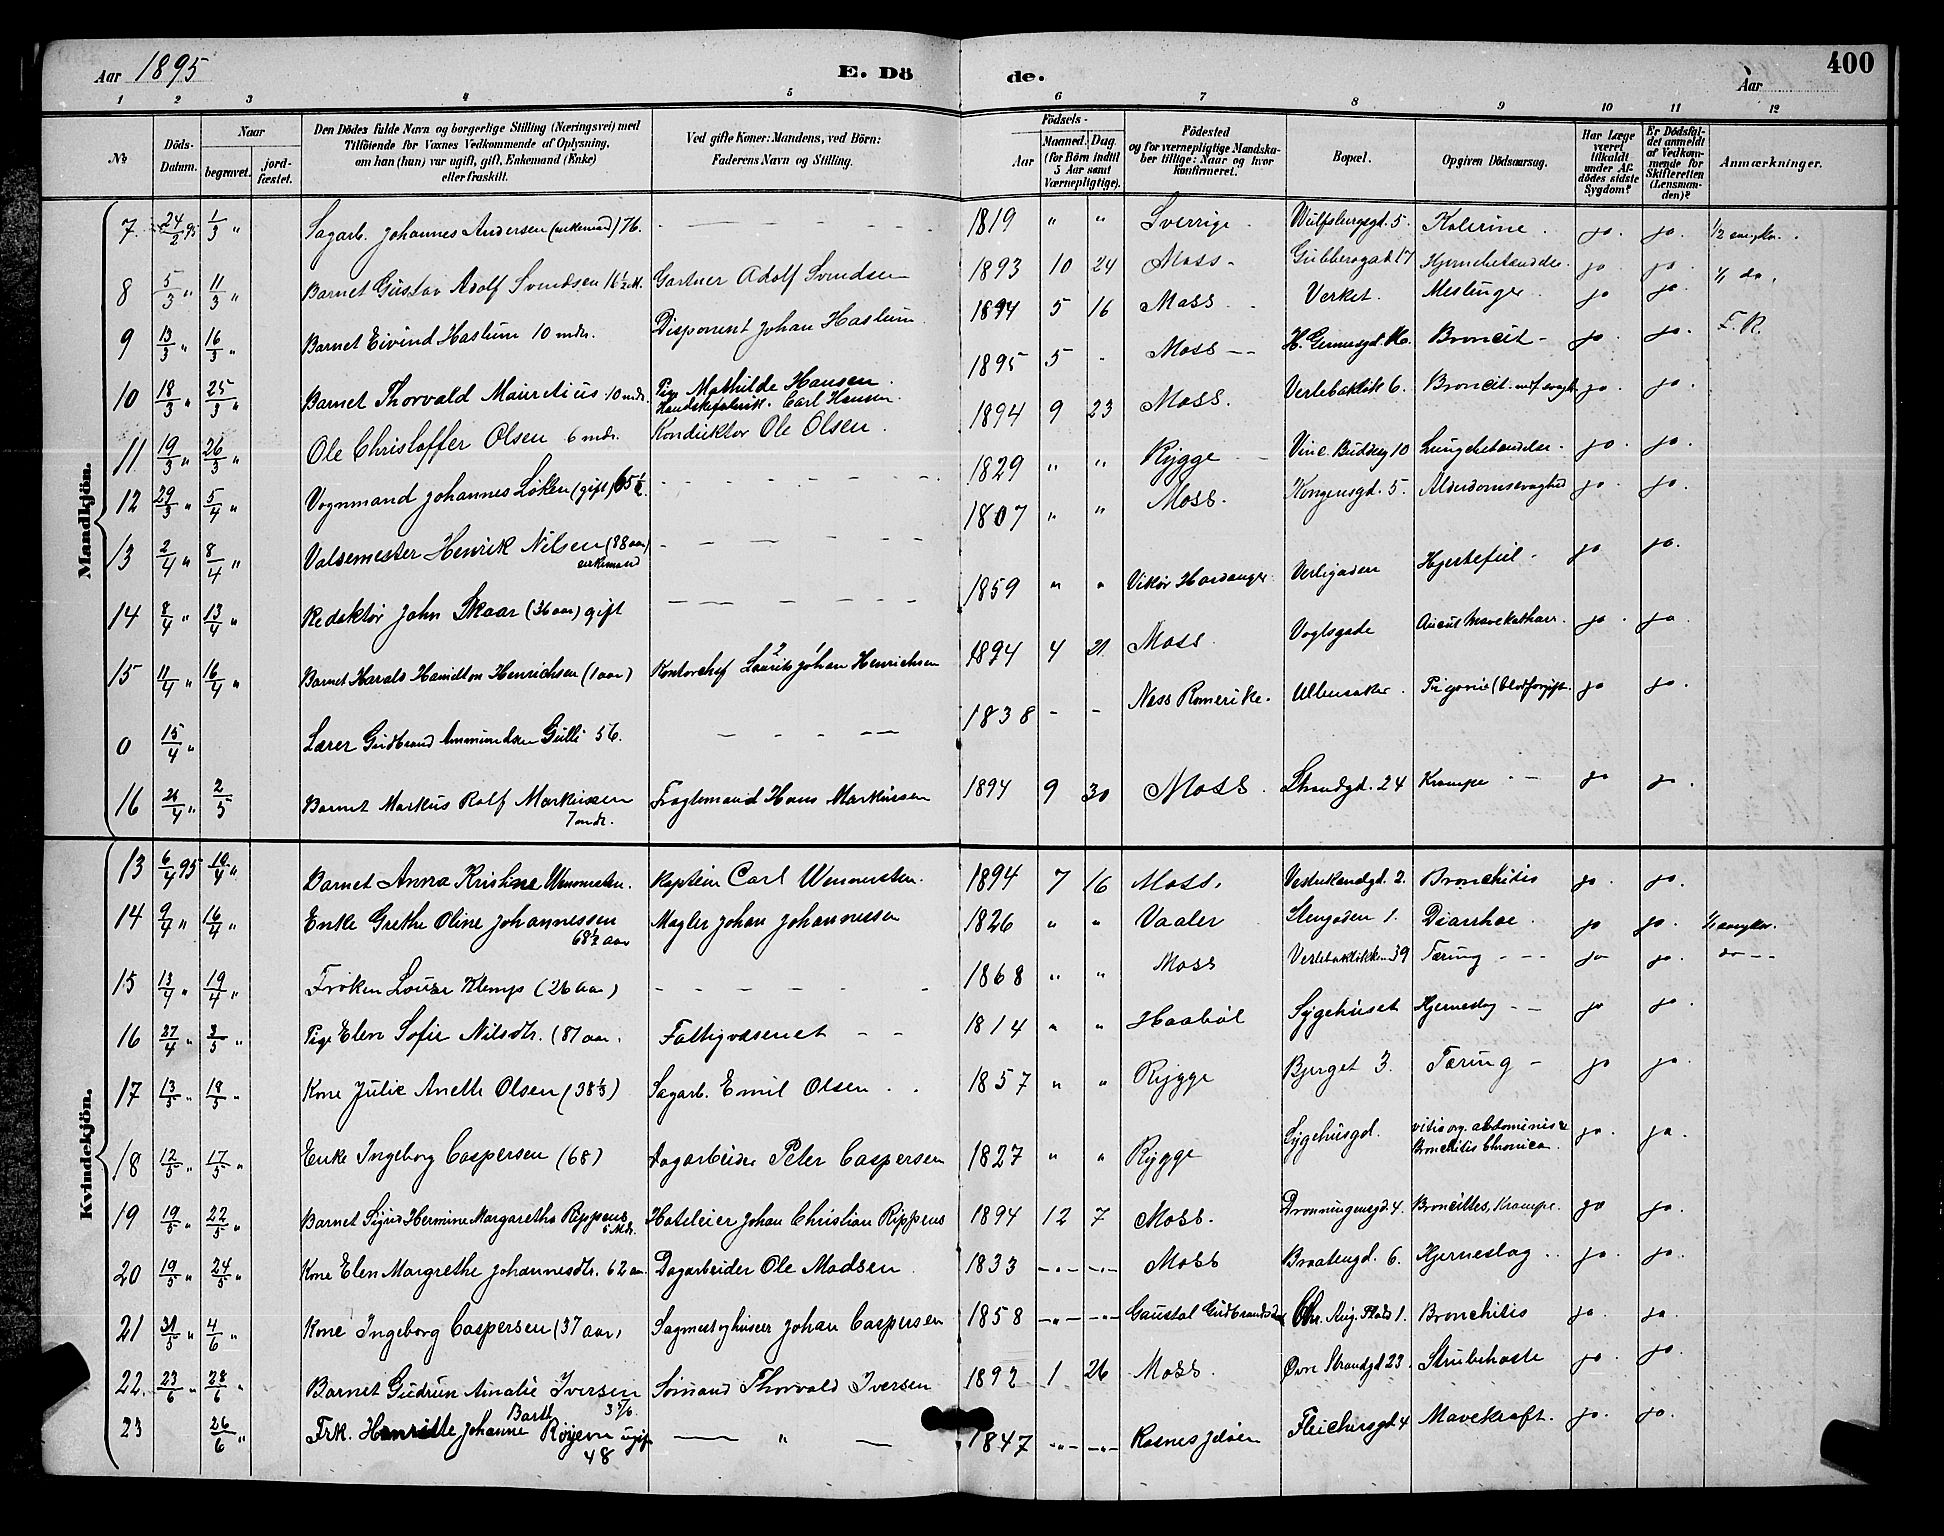 Aar 1895
E. Döde.
Aar
400
1 2 3 4 5 6 7 8 9 10 11 12
No
Döds-Datum.
Naar
begravet.
jord-fæstet.
Den Dödes fulde Navn og borgerlige Stilling (Næringsvei) med
Tilföiende for Voxnes Vedkommende af Oplysning,
om han (hun) var ugift, gift, Enkemand (Enke)
eller fraskilt.
Ved gifte Koner: Mandens, ved Börn:
Faderens Navn og Stilling.
Födsels-
Aar
Maaned. Dag.
(for Börn indtil
5 Aar samt
Værnepligtige).
Födested
og for værnepligtige Mandska-
ber tillige: Naar og hvor
konfirmeret.
Bopæl.
Opgiven Dödsaarsag.
Har Læge
været
tilkaldt
under Af-
dödes sidste
Sygdom?
Er Dödsfal-
det anmeldt
af Vedkom-
mende for
Skifteretten
(Lensman-
den)?
Anmærkninger.
Mandkjön.
7. 24/2 95 1/3 " Sagarb. Johannes Andersen (enkemand) 76. 1819 " " Sverrige Wulfsbergsgd. 5. Kolerine. ja. ja.
8 5/3 " 11/3 " Barnet Gustav Adolf Svendsen 16 1/2 M. Gartner Adolf Svendsen 1893 10 24 Moss Gubberogad 17 Hjernebetændelse. ja ja. do.
9 13/3 " 16/3 " Barnet Eivind Haslum 10 mdr. Disponent Johan Haslum 1894 5 16 Moss Verket. Meslinger. ja ja. F. R.
10 18/3 " 25/3 " Barnet Thorvald Mauretius 10 mdr. Pige Mathilde Hansen.
Carl Hansen. 1895 5 Moss H. Gernersgd. Broncit ja. ja.
11 19/3 " 26/3 " Ole Christoffer Olsen 6 mdr. Konduktør Ole Olsen. 1894 9 23 Moss. 6. Broncit ja. ja.
12 29/3 " 5/4 " Vognmand Johannes Løken (gift) 65 1/2. 1829 " " Rygge 10 Lungebetændelse. ja. ja.
13 2/4 " 8/4 " Valsemester Henrik Nilsen (88 aar)
enkemand 1807 " " Moss. Kongensgd. 5. Alderdomssvaghed ja. ja.
14 8/4 " 13/4 " Redaktør John Skaar (36 aar) gift 1859 " " Vikør Hardanger Verligaden Hjertefeil. ja ja.
15 11/4 " 16/4 " Barnet Harald Hamilton Henrichsen (1 aar) Kontorchef Laurits Johan Henrichsen 1894 4 21 Moss. Vogtsgade Mavekatharr. ja. ja
0 15/4 " Lærer Gudbrand Ammundsen Gulli 56. 1838 - - Næs Romerike. Ullensaker. (Blodforgift. ja ja.
16 26/4 " 2/5 Barnet Markus Rolf Markussen
7 mdr. Fragtemand Hans Markussen 1894 9 30 Moss. Strandgd. 24 Krampe ja ja.
Kvindekjön.
13 6/4 95 10/4 " Barnet Anna Kristine Wennersten. Kaptein Carl Wennersten. 1894 7 16 Moss. 2. Bronchitis ja. ja.
14 9/4 " 16/4 " Enke Grethe Oline Johannessen
68 1/2 aar Mægler Johan Johannessen 1826 " " Vaaler Stengaden 1. Diarrhoe. ja ja.
15 13/4 " 19/4 " Frøken Louise Klemp (26 aar) 1868 " " Moss 39 Tæring ja ja. do
16 27/4 " 3/5 " Pige Elen Sofie Nilsdtr. (81 aar. Fattigvæsenet 1814 " " Haabøl Sygehuset Hjerneslag ja ja.
17 13/5 " 19/5 " Kone Julie Anette Olsen (38 1/3) Sagarb. Emil Olsen. 1857 " " Rygge Bjerget 3. Tæring ja ja.
18 12/5 " 17/5 " Enke Ingeborg Caspersen (68) Dagarbeider Peter Caspersen 1827 " " Rygge Sygehusgd. vitis org. abdominis &
Bronchitis Chronica. ja. ja.
19 19/5 " 22/5 " Barnet Sigrid Hermine Margaretha Rippens
5 Mdr. Hoteleier Johan Christian Rippens 1894 12 7 Moss. Dronningensgd. 4. Broncittes, Krampe. ja ja.
20 19/5 " 24/5 " Kone Elen Margrethe Johannesdtr. 62 aar. Dagarbeider Ole Madsen 1833 -"- -"- Moss Braatengd. 6. Hjerneslag ja. ja.
21 31/5 " 4/6 " Kone Ingeborg Caspersen (37 aar) Johan Caspersen 1858 -"- -"- Gudbrandsdal Chr. Aug. Plads 1. Bronchitis ja. ja.
22. 23/6 " 28/6 " Barnet Gudrun Amalie Iversen
3 5/12 Sømand Thorvald Iversen 1892 1 26 Moss. Øvre Strandgd 23. Strubehoste ja. ja.
23 26/6 " Frk. Henriette Johanne Barth Røyem ugift
48 " 1847 -"- -"- Jeløen Fleichersgd 4 Mavekræft. ja. ja.